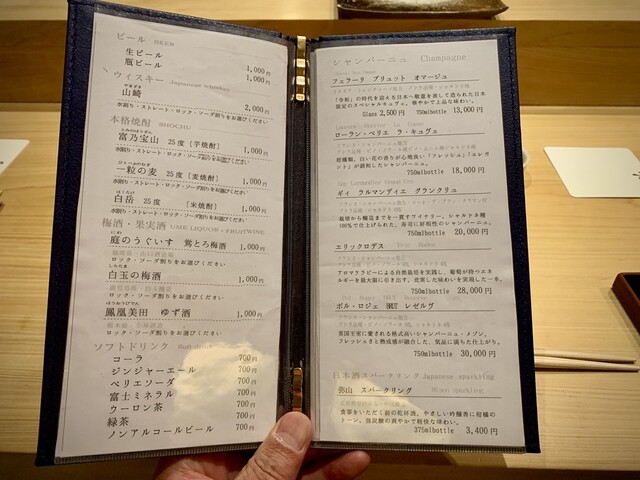 ビール BEER
生ビール 1,000円
瓶ビール 1,000円
ウィスキー Japanese whiskey
やまざき
山崎 2,000円
水割り・ストレート・ロック・ソーダ割りをお選びください
本格焼酎 SHOCHU
富乃宝山 25度 [芋焼酎] 1,000円
水割り・ストレート・ロック・ソーダ割りをお選びください
一粒の麦 25度 [麦焼酎] 1,000円
水割り・ストレート・ロック・ソーダ割りをお選びください
はくたけ
白岳 25度 [米焼酎] 1,000円
水割り・ストレート・ロック・ソーダ割りをお選びください
梅酒・果実酒 UME LIQUOR・FRUITWINE
にわ
庭のうぐいす 鶯とろ梅酒 1,000円
ロック・ソーダ割りをお選びください
しらたま
白玉の梅酒 1,000円
ロック・ソーダ割りをお選びください
ほうおうびでん
鳳凰美田 ゆず酒 1,000円
ロック・ソーダ割りをお選びください
ソフトドリンク Soft drink
コーラ 700円
ジンジャーエール 700円
ペリエソーダ 700円
富士ミネラル 700円
ウーロン茶 700円
緑茶 700円
ノンアルコールビール 700円
シャンパーニュ Champagne
フェラーリ ブリュット オマージュ
「令和」の時代を迎える日本へ敬意を表して造られた日本
限定のスペシャルキュヴェ。華やかで上品な味わい。
Glass 2,500円 750mlbottle 13,000円
ローラン・ペリエ ラ・キュヴェ
柑橘類、白い花の香りが心地良い「フレッシュ」「エレガ
ント」が調和したシャンパーニュ。
750mlbottle 18,000円
ギィ ラルマンディエ グランクリュ
栽培から醸造までを一貫すワイナリー。シャルドネ種
100%で仕上げられた、寿司に好相性のシャンパーニュ。
750mlbottle 20,000円
エリックロデス
アロマテラピーによる自然栽培を実践し、葡萄が持つエネ
ルギーを最大限に引き出す。充実した味わいを実現した一本。
750mlbottle 28,000円
ポル・ロジェ BRUT レゼルヴ
英国王室に愛される格式高いシャンパーニュ・メゾン。
フレッシュさと熟成感が融合した、気品に満ちた仕上がり。
750mlbottle 30,000円
日本酒スパークリング Japanese sparkling
弥山 スパークリング Misen sparkling
食事をいただく前の乾杯酒。やさしい吟醸香に柑橘の
トーン。強炭酸の爽やかで軽快な味わい。
375mlbottle 3,400円